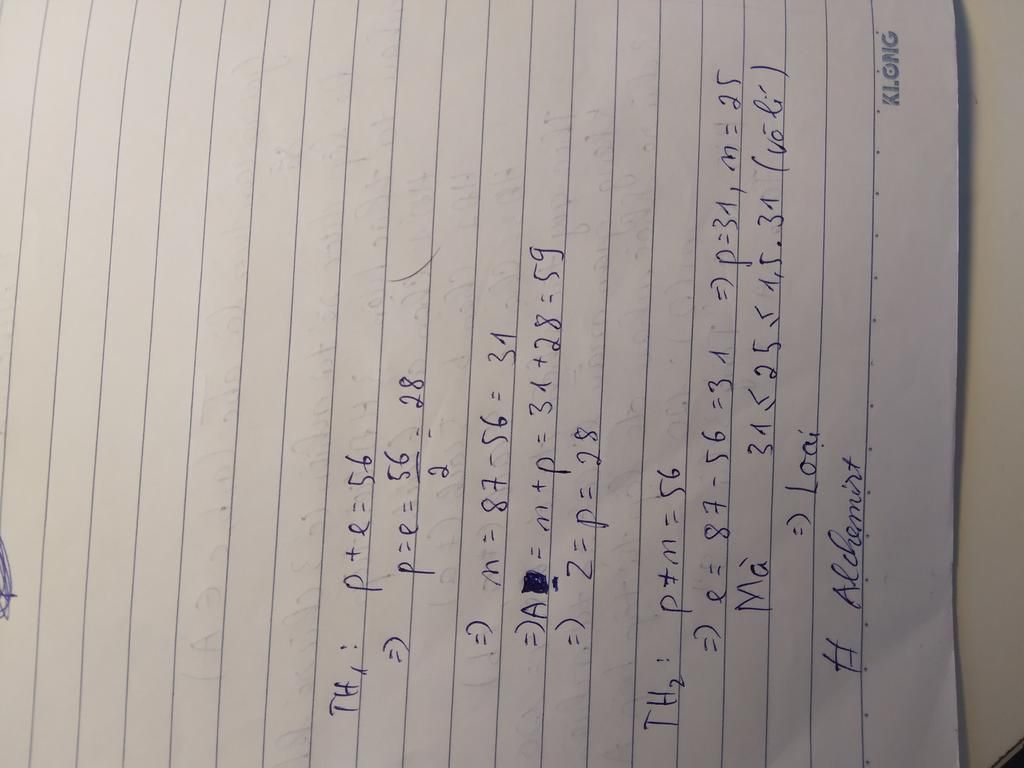 TH₁: p + e = 56
=) p = e = 56/2 = 28
=) n = 87 - 56 = 31
=) A = n + p = 31 + 28 = 59
=) Z = p = 28
TH₂: p + n = 56
=) e = 87 - 56 = 31 =) p = 31, n = 25
Mà 31 ≤ 25 ≤ 1,5.31 (vô lí)
=) Loại
# Alchemist
KLONG